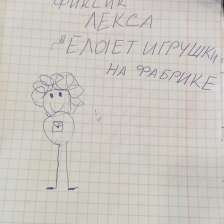 ФИКСИК
ЛЕКСА
ДЕЛОЕТ ИГРУШКИ
НА ФАБРИКЕ